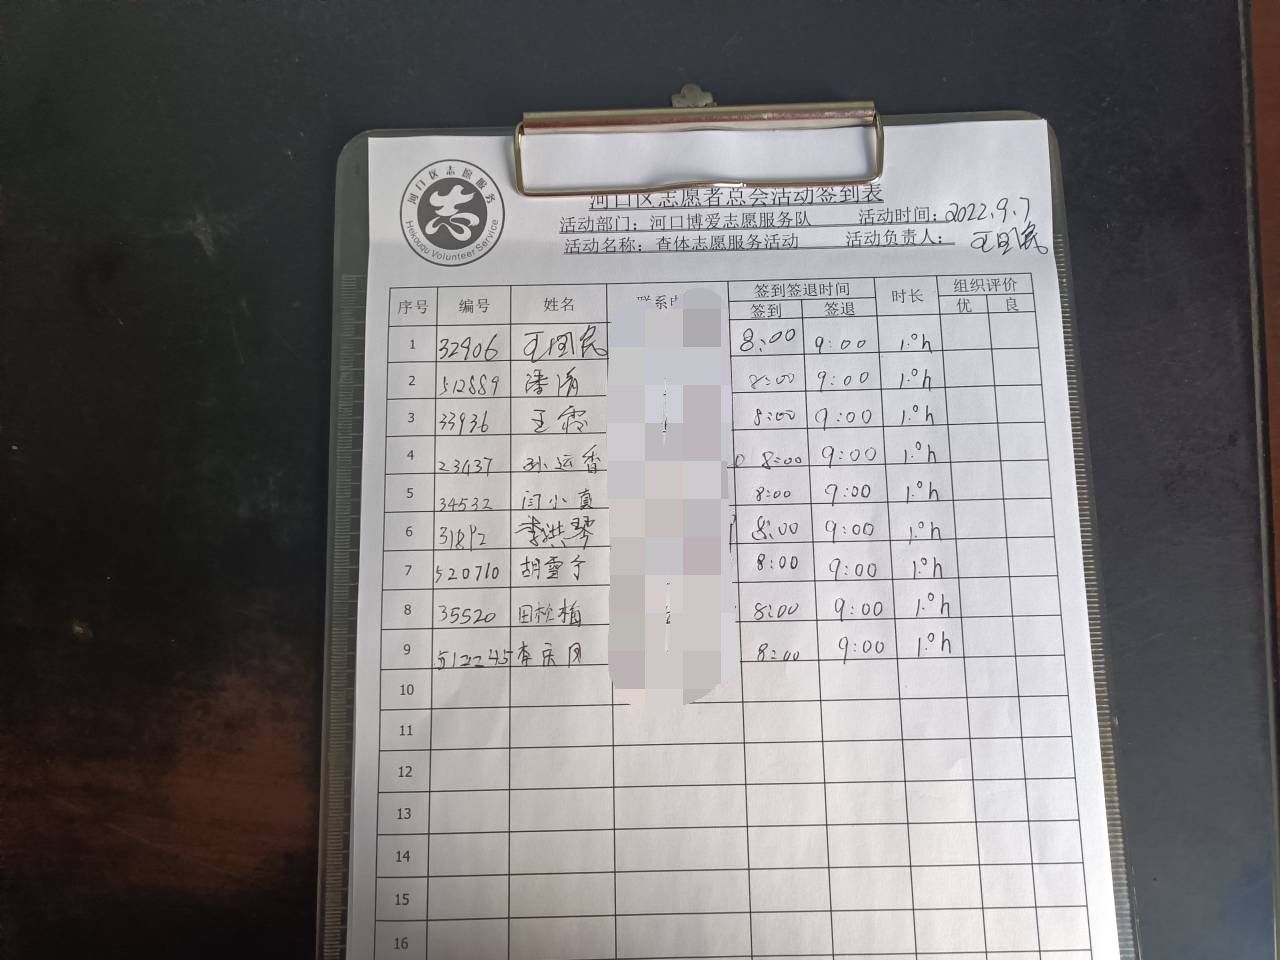 河口区志愿服务
志
Hekouqu Volunteer Service
河口区志愿者总会活动签到表
活动部门：河口博爱志愿服务队 活动时间：2022.9.7
活动名称：查体志愿服务活动 活动负责人：王国民
序号 编号 姓名 联系电 签到签退时间 时长 组织评价
签到 签退 优 良
1 32906 王国民 8:00 9:00 1.0h
2 512889 潘 8:00 9:00 1.0h
3 33936 王霞 8:00 9:00 1.0h
4 23437 孙运香 8:00 9:00 1.0h
5 34532 闫小真 8:00 9:00 1.0h
6 李洪琴 8:00 9:00 1.0h
7 520710 胡雪 8:00 9:00 1.0h
8 35520 田 8:00 9:00 1.0h
9 512245 李庆 8:00 9:00 1.0h
10
11
12
13
14
15
16